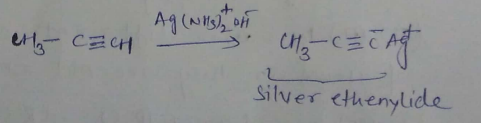 CH₃— C≡CH —Ag(NH₃)₂⁺ OH⁻→ CH₃—C≡C⁻Ag⁺
silver ethenylide